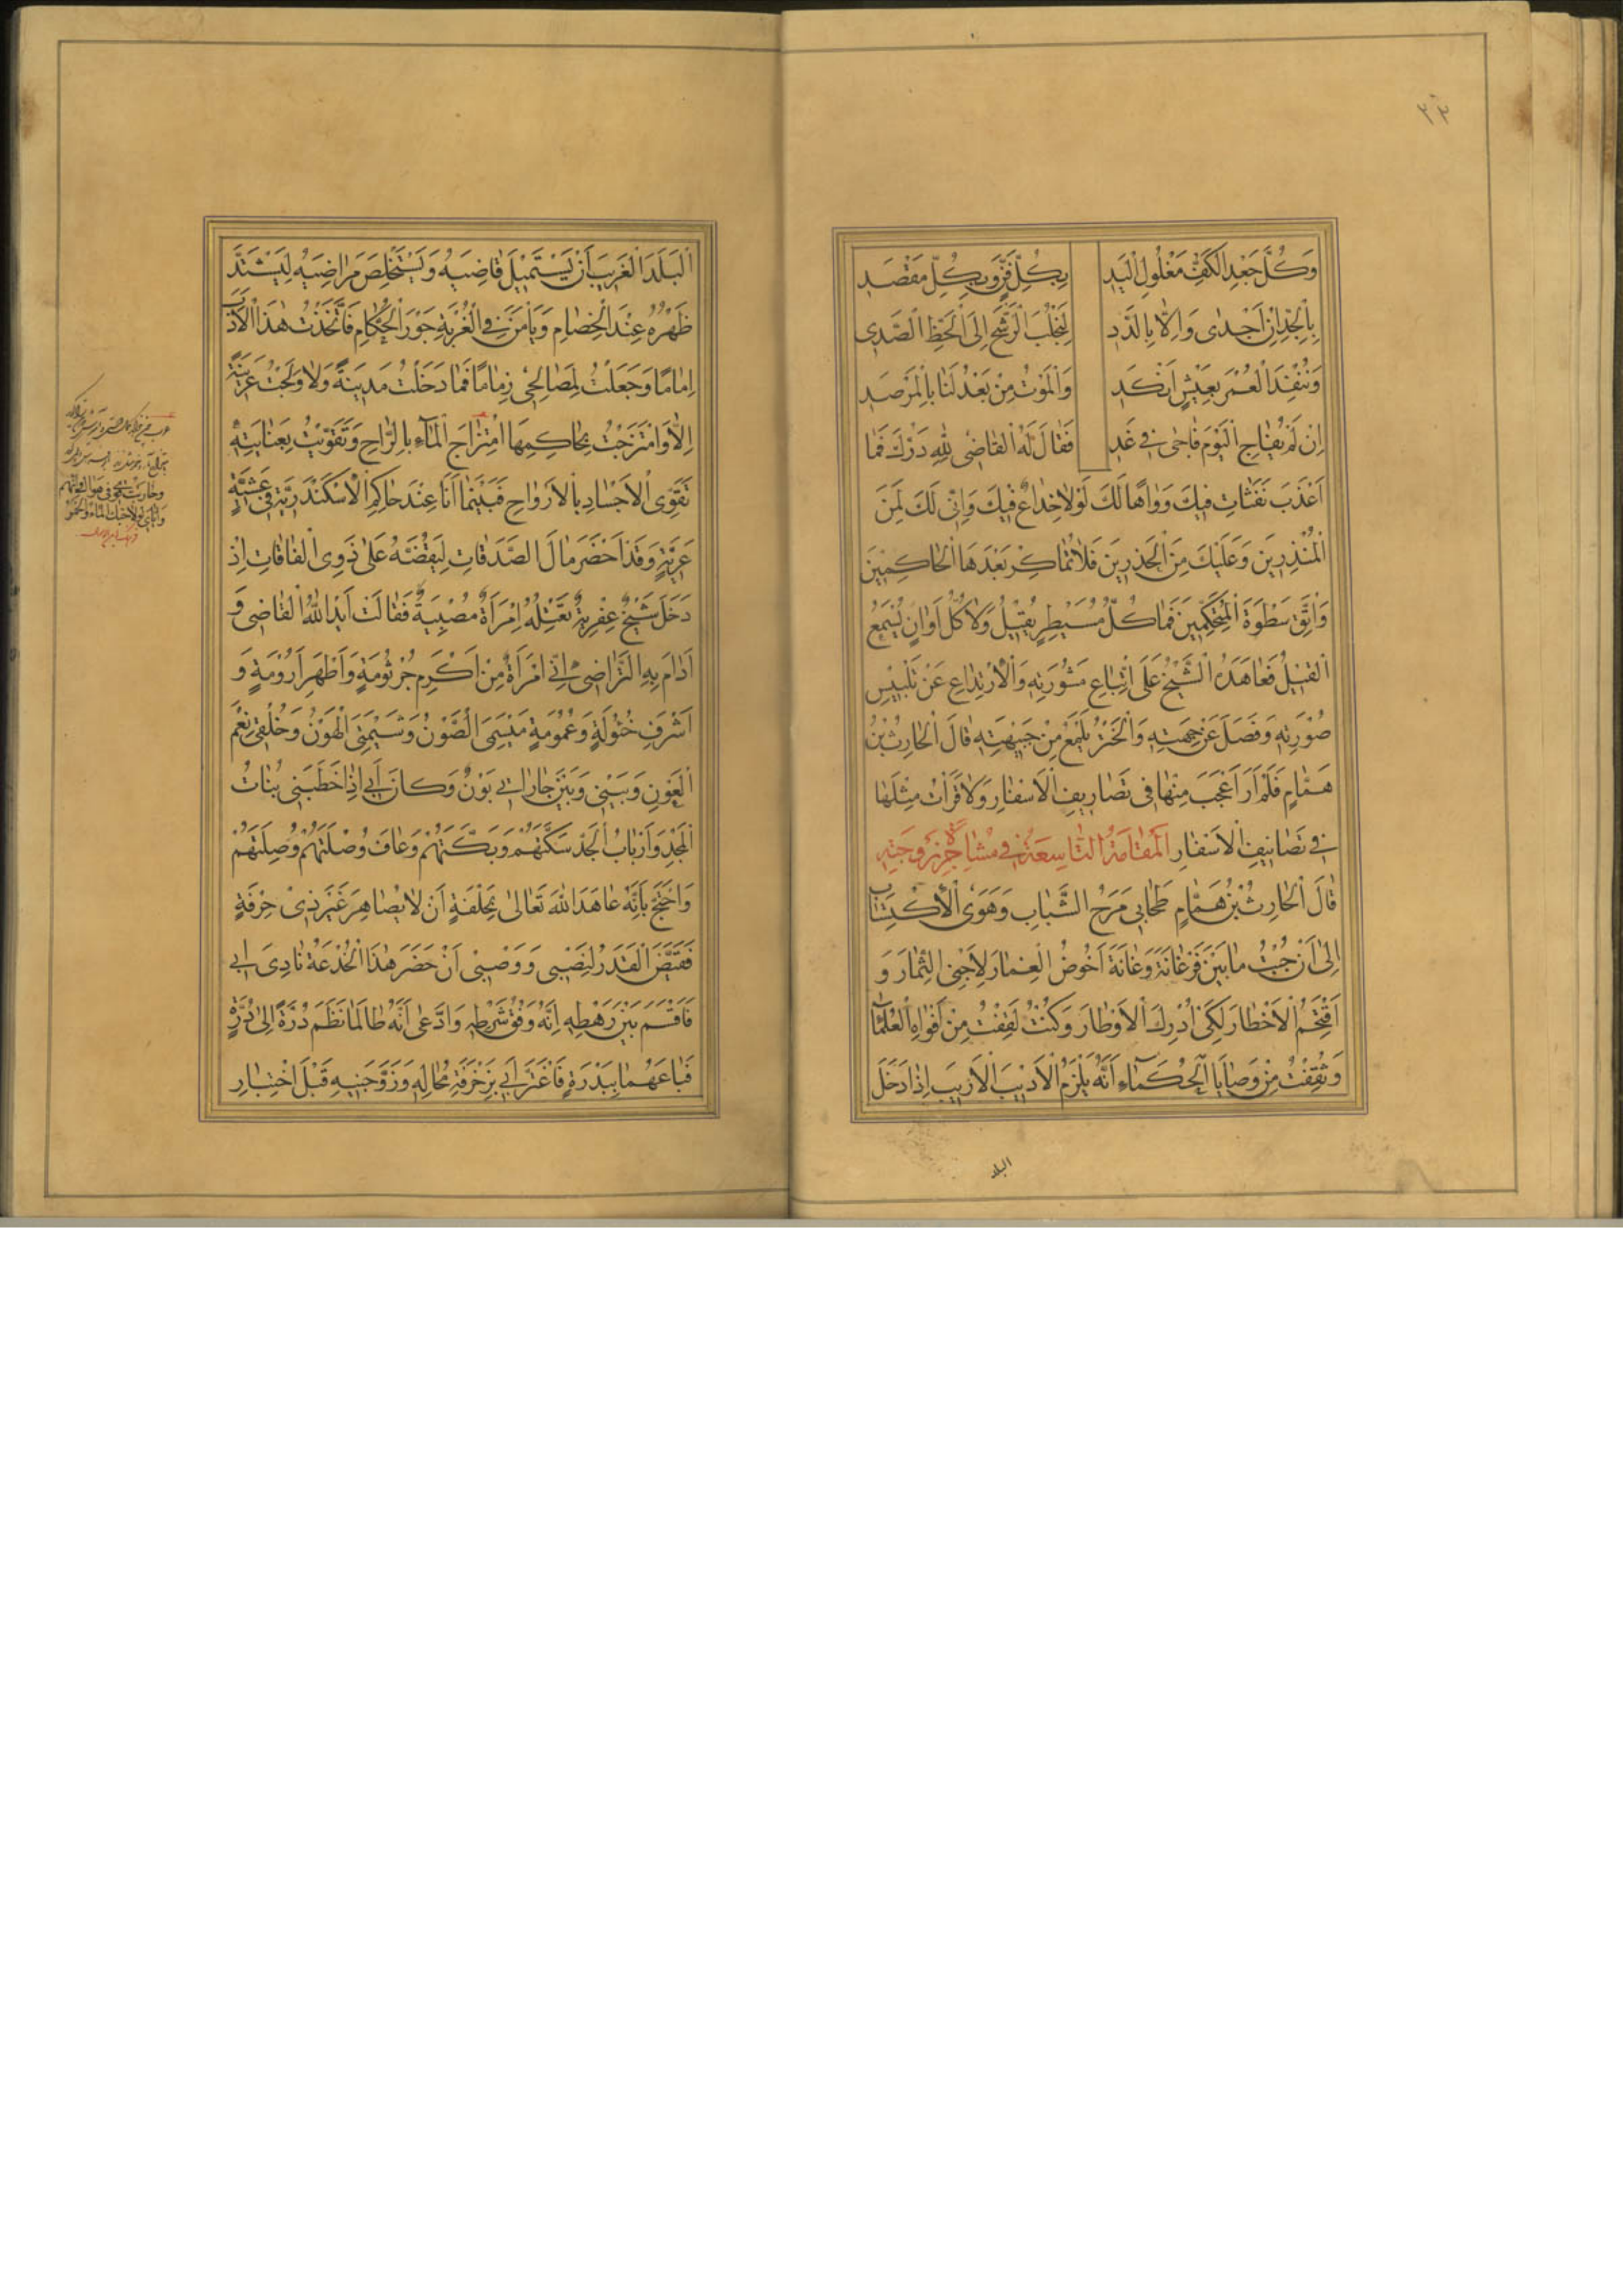 ٣٣
وَكُلِّ جَعْدِ الْكَفِّ مَغْلُولِ الْيَدِ بِكُلِّ فَنٍّ وَبِكُلِّ مَقْصَدِ
بِالْجِدِّ اِنْ اَجْدٰى وَاِلَّا بِالدَّدِ لِنَجْلُبَ الرَّشْحَ اِلَى الْحَظِّ الصَّدِى
وَنُنْفِدَ الْعُمْرَ بِعَيْشٍ اَنْكَدِ وَالْمَوْتُ مِنْ بَعْدُ لَنَا بِالْمَرْصَدِ
اِنْ لَمْ يُفَاجِ الْيَوْمَ فَاجٰى فِى غَدِ فَقَالَ لَهُ الْقَاضِى لِلّٰهِ دَرُّكَ فَمَا
اَعْذَبَ نَفَثَاتِ فِيكَ وَوَاهًا لَكَ لَوْلَا خِدَاعٌ فِيكَ وَاِنِّى لَكَ لَمِنَ
الْمُنْذِرِينَ وَعَلَيْكَ مِنَ الْحَذِرِينَ فَلَا تُمَاكِرْ بَعْدَهَا الْحَاكِمِينَ
وَاتَّقِ سَطْوَةَ الْمُتَحَكِّمِينَ فَمَا كُلُّ مُسَيْطِرٍ يُقِيلُ وَلَا كُلَّ اَوَانٍ يُسْمَعُ
الْقِيلُ فَعَاهَدَهُ الشَّيْخُ عَلَى اتِّبَاعِ مَشُورَتِهِ وَالْاِرْتِدَاعِ عَنْ تَلْبِيسِ
صُورَتِهِ وَفَصَلَ عَنْ جِهَتِهِ وَالْخَتْرُ يَلْمَعُ مِنْ جَبْهَتِهِ قَالَ الْحَارِثُ بْنُ
هَمَّامٍ فَلَمْ اَرَ اَعْجَبَ مِنْهَا فِى تَصَارِيفِ الْاَسْفَارِ وَلَا قَرَأْتُ مِثْلَهَا
فِى تَصَانِيفِ الْاَسْفَارِ الْمَقَامَةُ التَّاسِعَةُ فِى مُشَاجَرَةِ زَوْجَتِهِ
قَالَ الْحَارِثُ بْنُ هَمَّامٍ طَحَابِى مَرَحُ الشَّبَابِ وَهَوَى الْاِكْتِسَابِ
اِلٰى اَنْ جُبْتُ مَا بَيْنَ فَرْغَانَةَ وَغَانَةَ اَخُوضُ الْغِمَارَ لِاَجْنِىَ الثِّمَارَ وَ
اَقْتَحِمُ الْاَخْطَارَ لِكَىْ اُدْرِكَ الْاَوْطَارَ وَكُنْتُ لَقِفْتُ مِنْ اَفْوَاهِ الْعُلَمَاءِ
وَثَقِفْتُ مِنْ وَصَايَا الْحُكَمَاءِ اَنَّهُ يَلْزَمُ الْاَدِيبَ الْاَرِيبَ اِذَا دَخَلَ
البلد
الْبَلَدَ الْغَرِيبَ اَنْ يَسْتَمِيلَ قَاضِيَهُ وَيَسْتَخْلِصَ مَرَاضِيَهُ لِيَشْتَدَّ
ظَهْرُهُ عِنْدَ الْخِصَامِ وَيَأْمَنَ فِى الْغُرْبَةِ جَوْرَ الْحُكَّامِ فَاتَّخَذْتُ هٰذَا الْاَدَبَ
اِمَامًا وَجَعَلْتُ لِمَصَالِحِى زِمَامًا فَمَا دَخَلْتُ مَدِينَةً وَلَا وَلَجْتُ عَرِينَةً
اِلَّا وَامْتَزَجْتُ بِحَاكِمِهَا امْتِزَاجَ الْمَاءِ بِالرَّاحِ وَتَقَوَّيْتُ بِعِنَايَتِهِ
تَقَوِّىَ الْاَجْسَادِ بِالْاَرْوَاحِ فَبَيْنَمَا اَنَا عِنْدَ حَاكِمِ الْاِسْكَنْدَرِيَّةِ فِى عَشِيَّةٍ
عَرِيَّةٍ وَقَدْ اَحْضَرَ مَالَ الصَّدَقَاتِ لِيَفُضَّهُ عَلٰى ذَوِى الْفَاقَاتِ اِذْ
دَخَلَ شَيْخٌ عِفْرِيَةٌ تَعْتِلُهُ اِمْرَأَةٌ مُصْبِيَةٌ فَقَالَتْ اَيَّدَ اللّٰهُ الْقَاضِىَ وَ
اَدَامَ بِهِ التَّرَاضِىَ اِنِّى امْرَأَةٌ مِنْ اَكْرَمِ جُرْثُومَةٍ وَاَطْهَرِ اَرُومَةٍ وَ
اَشْرَفِ خُئُولَةٍ وَعُمُومَةٍ مِيْسَمِىَ الصَّوْنُ وَشِيمَتِىَ الْهَوْنُ وَخُلُقِى نِعْمَ
الْعَوْنِ وَبَيْنِى وَبَيْنَ جَارَاتِى بَوْنٌ وَكَانَ اَبِى اِذَا خَطَبَنِى بُنَاتُ
الْمَجْدِ وَاَرْبَابُ الْجَدِّ سَكَّتَهُمْ وَبَكَّتَهُمْ وَعَافَ وُصْلَتَهُمْ وَصِلَتَهُمْ
وَاحْتَجَّ بِاَنَّهُ عَاهَدَ اللّٰهَ تَعَالٰى بِحَلْفَةٍ اَنْ لَا يُصَاهِرَ غَيْرَ ذِى حِرْفَةٍ
فَقَيَّضَ الْقَدَرُ لِنَصَبِى وَوَصَبِى اَنْ حَضَرَ هٰذَا الْخُدَعَةُ نَادِىَ اَبِى
فَاَقْسَمَ بَيْنَ رَهْطِهِ اِنَّهُ وَفْقُ شَرْطِهِ وَادَّعٰى اَنَّهُ طَالَمَا نَظَمَ دُرَّةً اِلٰى دُرَّةٍ
فَبَاعَهُمَا بِبَدْرَةٍ فَاغْتَرَّ اَبِى بِزَخْرَفَةِ مُحَالِهِ وَزَوَّجَنِيهِ قَبْلَ اخْتِبَارِ